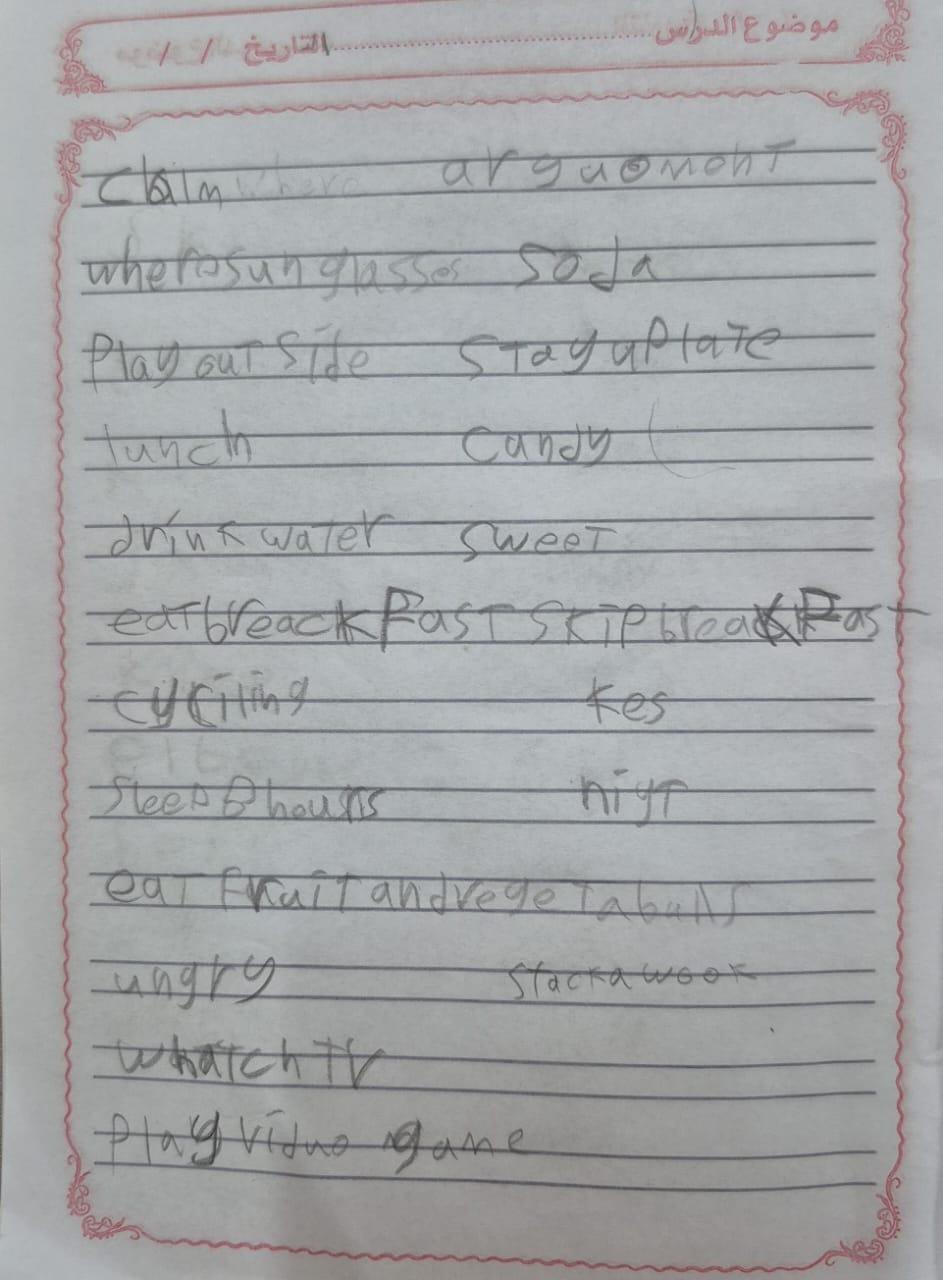 موضوع الدرس التاريخ / /
claim arguoment
where sunglasses soda
Play out side stay up late
lunch candy
drink water sweet
eat breackFast skip breakFast
cyciling kes
sleep 8 hours nigt
eat fruit and vegetabulls
ungry stack a wook
whatch TV
play viduo game